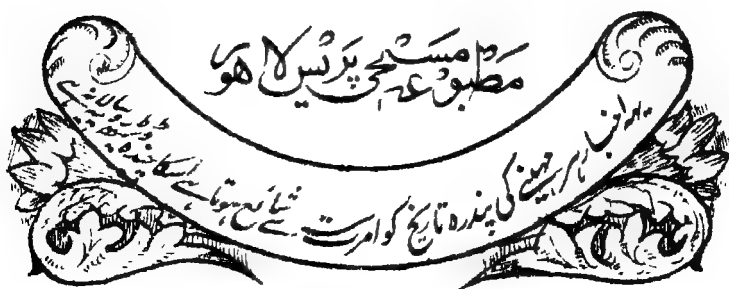 مطبوعہ مسیحی پریس لاہور
یہ اخبار ہر مہینے کی پندرہ تاریخ کو امرتسر سے شائع ہوتا ہے اسکا چندہ ڈیڑھ روپیہ سالانہ ہے